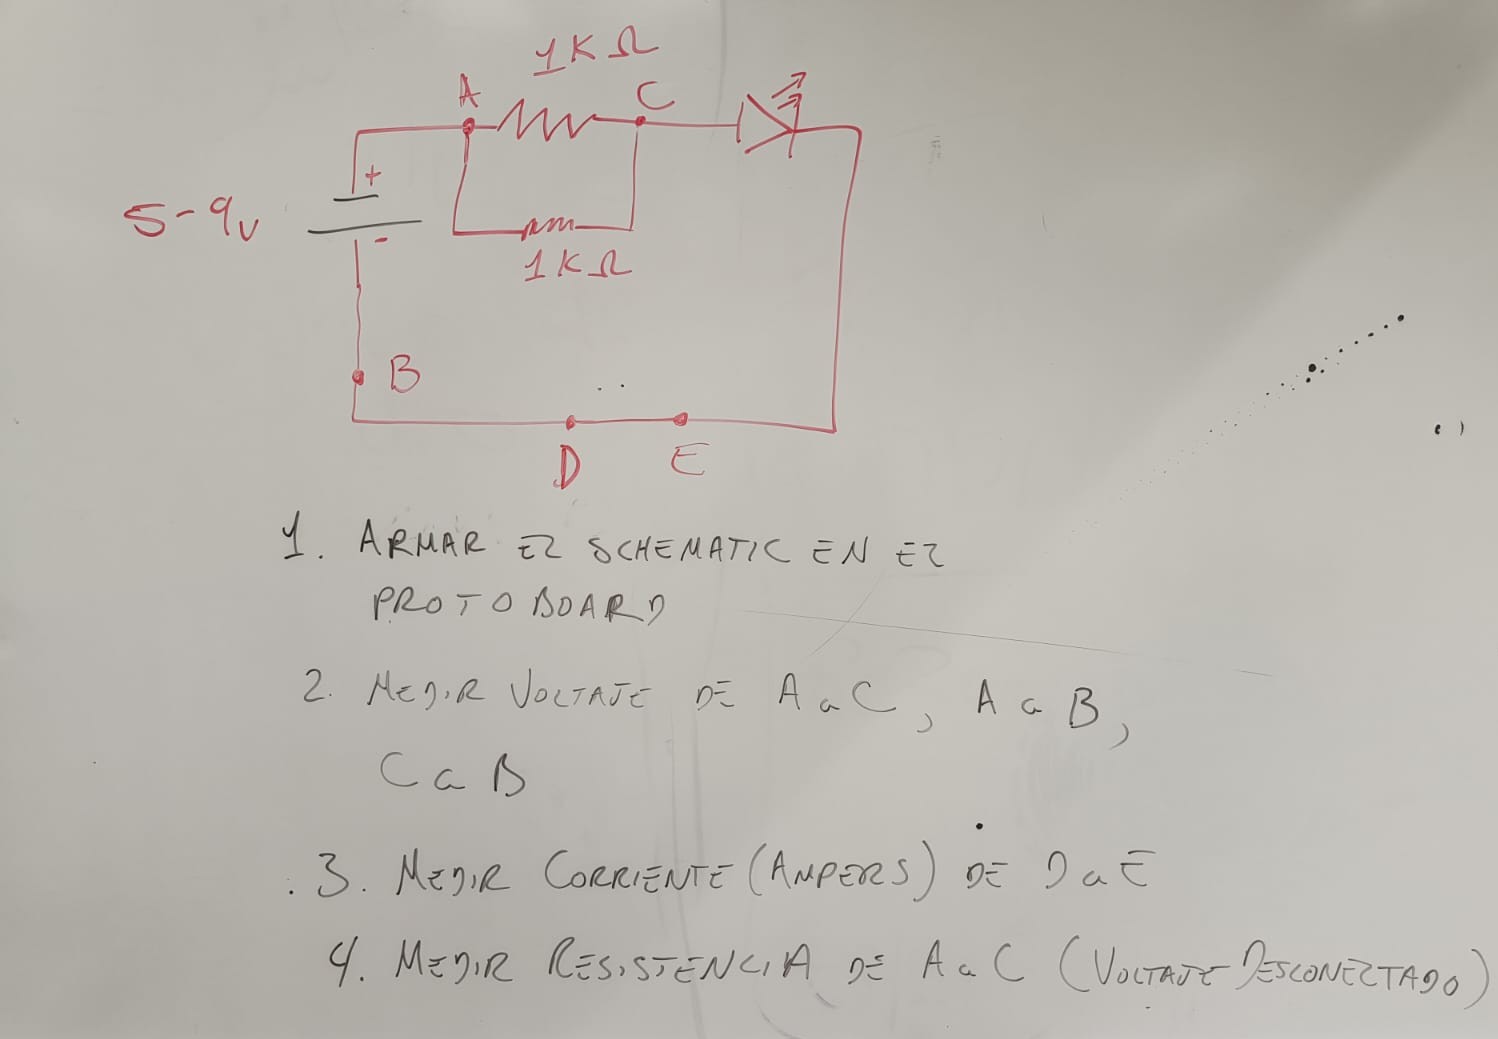 1KΩ
A
C
+
5-9v
-
1KΩ
B
D
E
1. ARMAR EL SCHEMATIC EN EL
PROTOBOARD
2. MEDIR VOLTAJE DE A a C, A a B,
C a B
3. MEDIR CORRIENTE (AMPERS) DE D a E
4. MEDIR RESISTENCIA DE A a C (VOLTAJE DESCONECTADO)